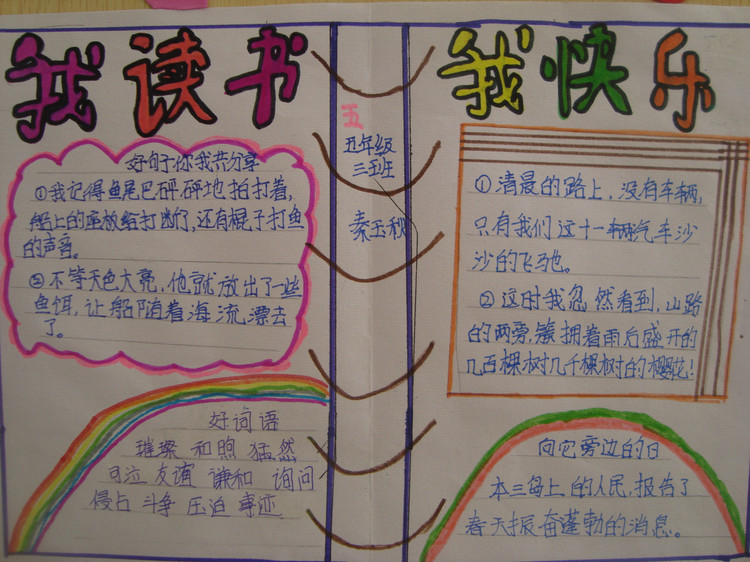 我读书
好句子你我共分享
①我记得鱼尾巴砰砰地拍打着,
船上的座板给打断了,还有棍子打鱼
的声音。
②不等天色大亮,他就放出了一些
鱼饵,让船随着海流漂去
了。
好词语
璀璨 和煦 猛然
可泣 友谊 谦和 询问
侵占 斗争 压迫 事迹
五
五年级
三班
秦玉秋
我快乐
①清晨的路上,没有车辆,
只有我们这十一辆汽车沙
沙的飞驰。
②这时我忽然看到,山路
的两旁,簇拥着雨后盛开的
几百棵树几千棵树的樱花!
向它旁边的日
本三岛上的人民,报告了
春天振奋蓬勃的消息。